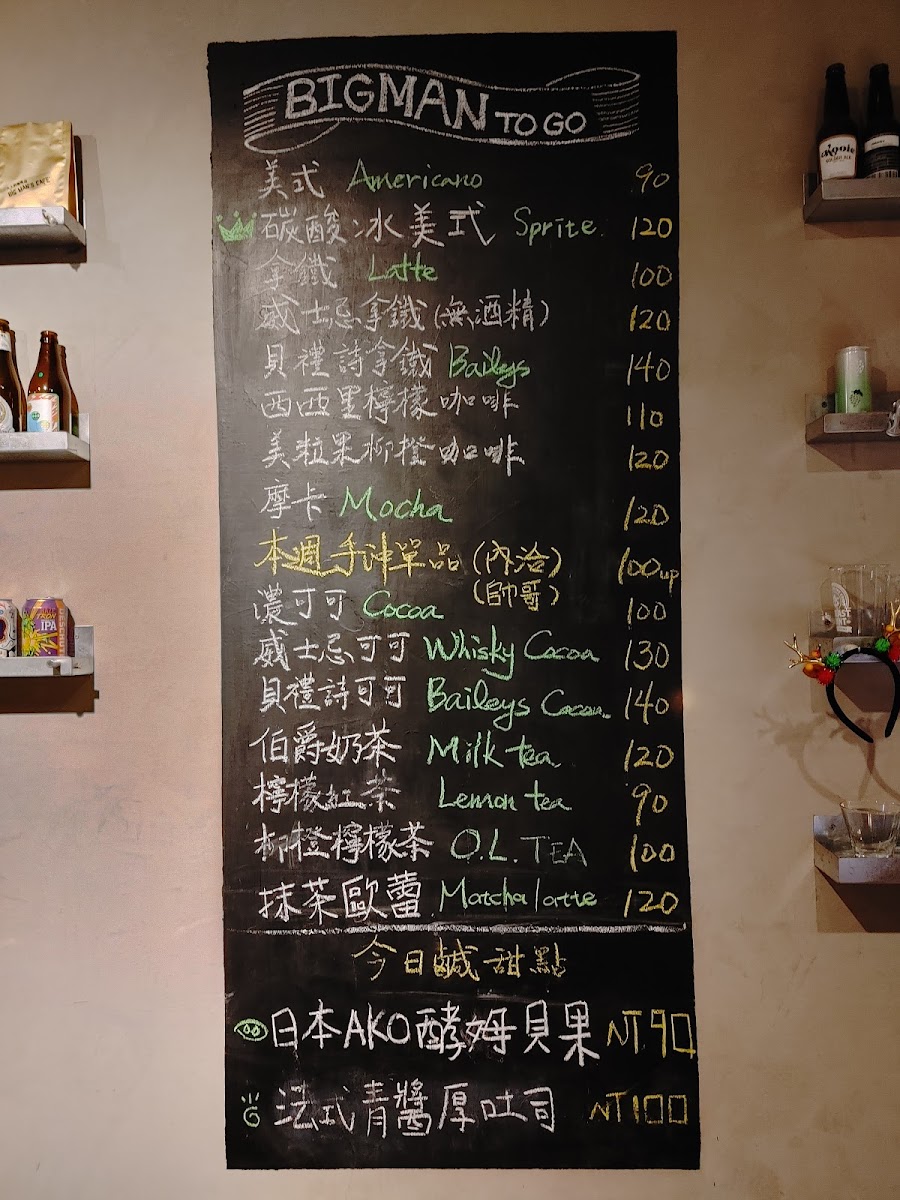 BIGMAN TO GO
美式 Americano 90
碳酸冰美式 Sprite 120
拿鐵 Latte 100
威士忌拿鐵(無酒精) 120
貝禮詩拿鐵 Baileys 140
西西里檸檬咖啡 110
美粒果柳橙咖啡 120
摩卡 Mocha 120
本週手沖單品 (內洽) 100up
(帥哥)
濃可可 Cocoa 100
威士忌可可 Whisky Cocoa 130
貝禮詩可可 Baileys Cocoa 140
伯爵奶茶 Milk tea 120
檸檬紅茶 Lemon tea 90
柳橙檸檬茶 O.L. TEA 100
抹茶歐蕾 Matcha latte 120
今日鹹甜點
日本AKO酵姆貝果 NT.90
法式青醬厚吐司 NT100
IPA